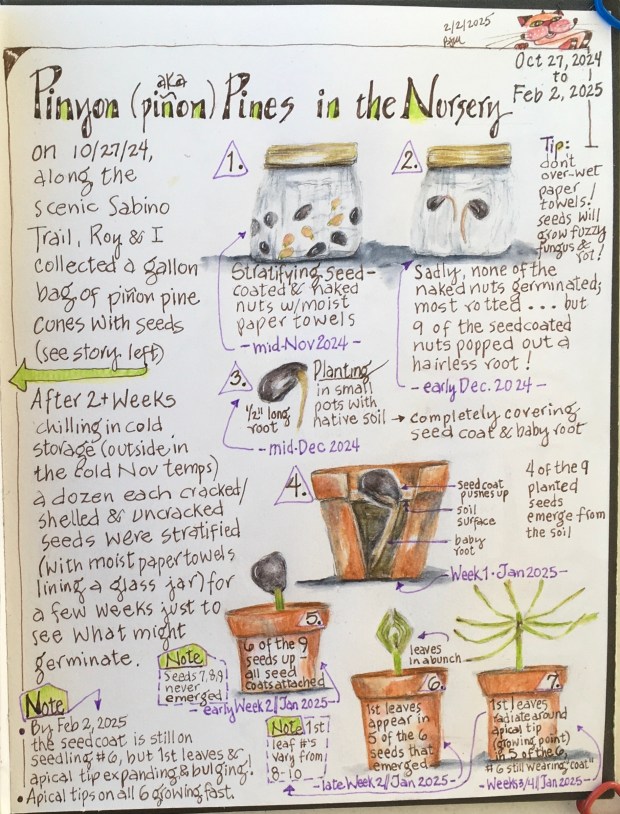 2/2/2025
Oct 27, 2024
to
Feb 2, 2025
aka
Pinyon (piñon) Pines in the Nursery
on 10/27/24,
along the
scenic Sabino
Trail, Roy & I
collected a gallon
bag of piñon pine
cones with seeds
(see story left)
After 2+ weeks
chilling in cold
storage (outside in
the cold Nov temps)
a dozen each cracked/
shelled & uncracked
seeds were stratified
(with moist paper towels
lining a glass jar) for
a few weeks just to
see what might
germinate.
1.
Stratifying seed-
coated & naked
nuts w/moist
paper towels
- mid-Nov 2024 -
2.
Sadly, none of the
naked nuts germinated;
most rotted... but
9 of the seedcoated
nuts popped out a
hairless root!
- early Dec. 2024 -
Tip:
don't
over-wet
paper
towels!
seeds will
grow fuzzy
fungus &
rot!
3.
1/2" long
root
Planting
in small
pots with
native soil → completely covering
seed coat & baby root
- mid-Dec 2024
4.
seed coat
pushes up
soil
surface
baby
root
4 of the 9
planted
seeds
emerge from
the soil
- Week 1 - Jan 2025 -
5.
6 of the 9
seeds up -
all seed
coats attached
- early Week 2 // Jan 2025 -
Note
Seeds 7,8,9
never
emerged!
leaves
in a bunch
6.
1st leaves
appear in
5 of the 6
seeds that
emerged
- late Week 2 // Jan 2025 -
Note 1st
leaf #'s
vary from
8-10
7.
1st leaves
radiate around
apical tip
(growing point)
in 5 of the 6,
#6 still wearing "coat"
- Weeks 3/4 // Jan 2025 -
Note
• By Feb 2, 2025
the seedcoat is still on
seedling #6, but 1st leaves &
apical tip expanding & bulging!
• Apical tips on all 6 growing fast.